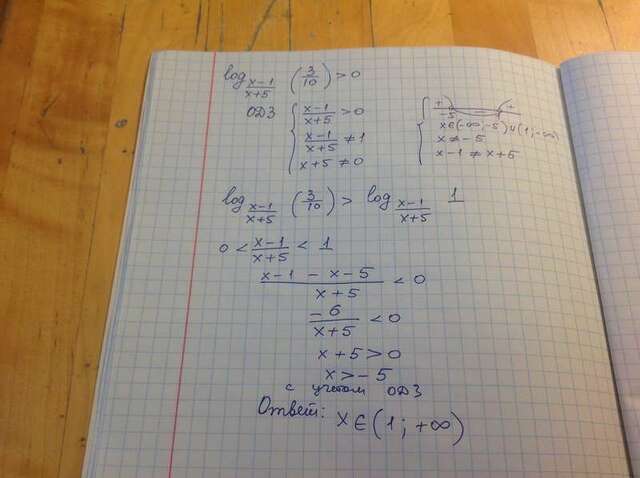 log_{\frac{x-1}{x+5}} (\frac{3}{10}) > 0
ОДЗ { \frac{x-1}{x+5} > 0
\frac{x-1}{x+5} ≠ 1
x+5 ≠ 0
{ + -5 +
x∈(-∞; -5)∪(1; -∞)
x ≠ -5
x-1 ≠ x+5
log_{\frac{x-1}{x+5}} (\frac{3}{10}) > log_{\frac{x-1}{x+5}} 1
0 < \frac{x-1}{x+5} < 1
\frac{x-1-x-5}{x+5} < 0
\frac{-6}{x+5} < 0
x+5 > 0
x > -5
с учетом ОДЗ
Ответ: x∈(1; +∞)